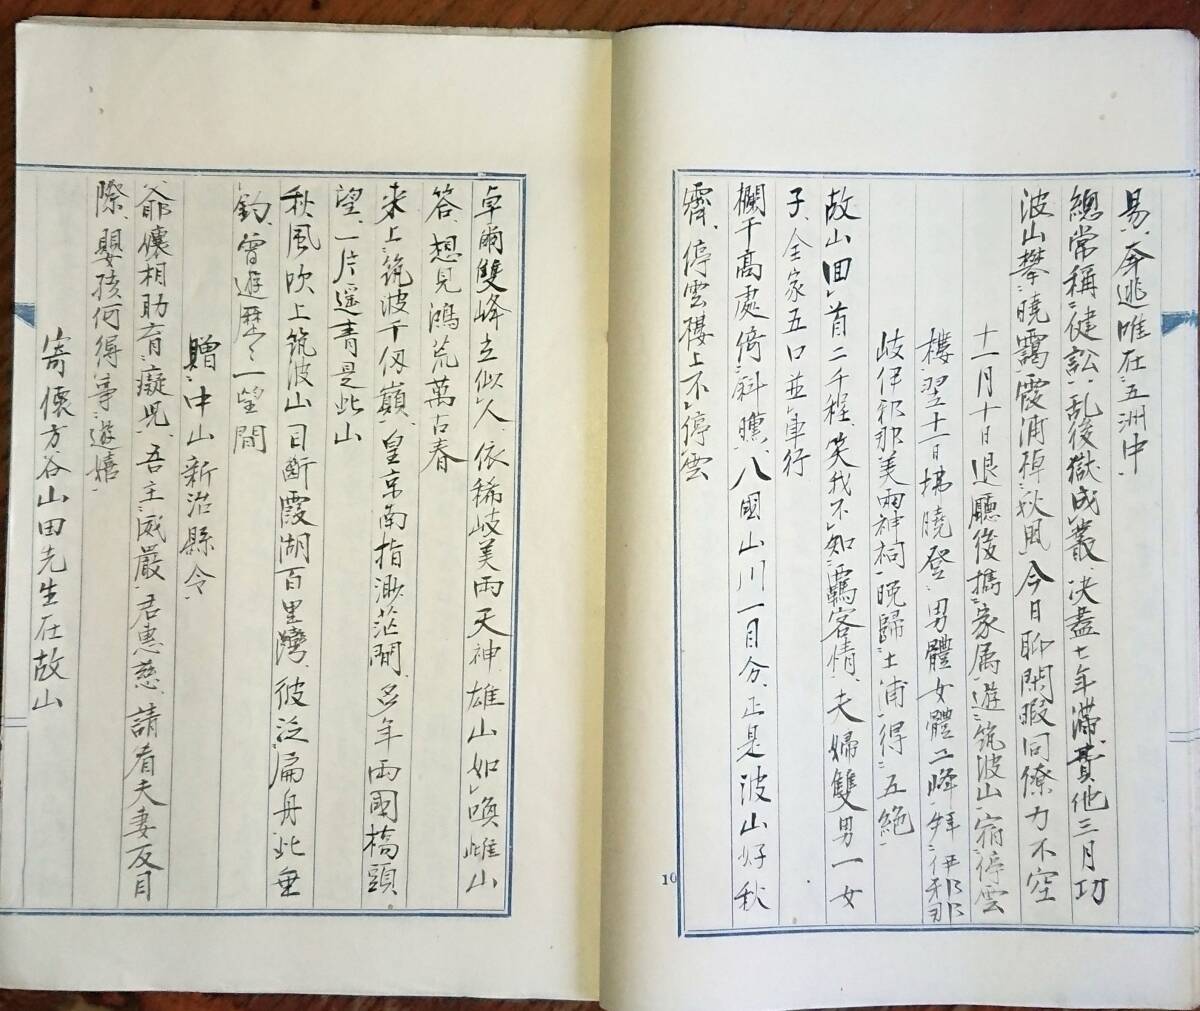 易、奔逃唯在五洲中
總常稱健訟、乱後獄成叢、決盡七年滞、費他三月功
波山攀曉靄、霞浦棹秋風、今日聊閑暇、同僚力不空
十一月十日退廳後攜家属遊筑波山宿停雲
樓翌十一日拂曉登男體女體二峰拜伊邪那
岐伊邪那美両神祠晩歸土浦得五絶
故山回首二千程、笑我不知羈客情、夫婦雙男一女
子、全家五口並車行
欄干髙處倚斜曛、八國山川一目分、正是波山好秋
霽、停雲樓上不停雲
10
卓爾雙峰立似人、依稀岐美両天神、雄山如喚雌山
答、想見鴻荒萬古春
来上筑波千仭巓、皇京南指渺茫間、多年両國橋頭
望、一片遥青是此山
秋風吹上筑波山、目断霞湖百里灣、彼泛扁舟此垂
釣、曾遊歴々一望間
贈中山新治縣令
爺孃相助育癡児、吾主威嚴君惠慈、請看夫妻反目
際、嬰孩何得事遊嬉
寄懐方谷山田先生在故山